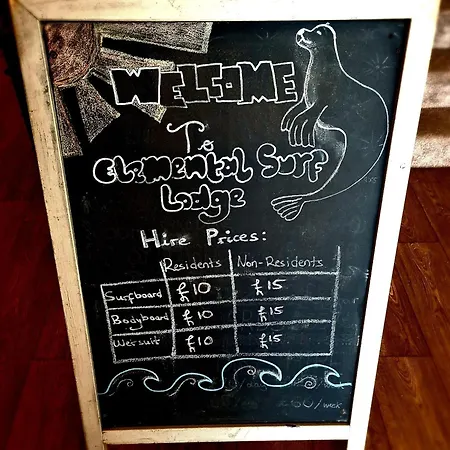 WELCOME
To
Elemental Surf
Lodge
Hire Prices:
Residents Non-Residents
Surfboard £10 £15
Bodyboard £10 £15
Wetsuit £10 £15